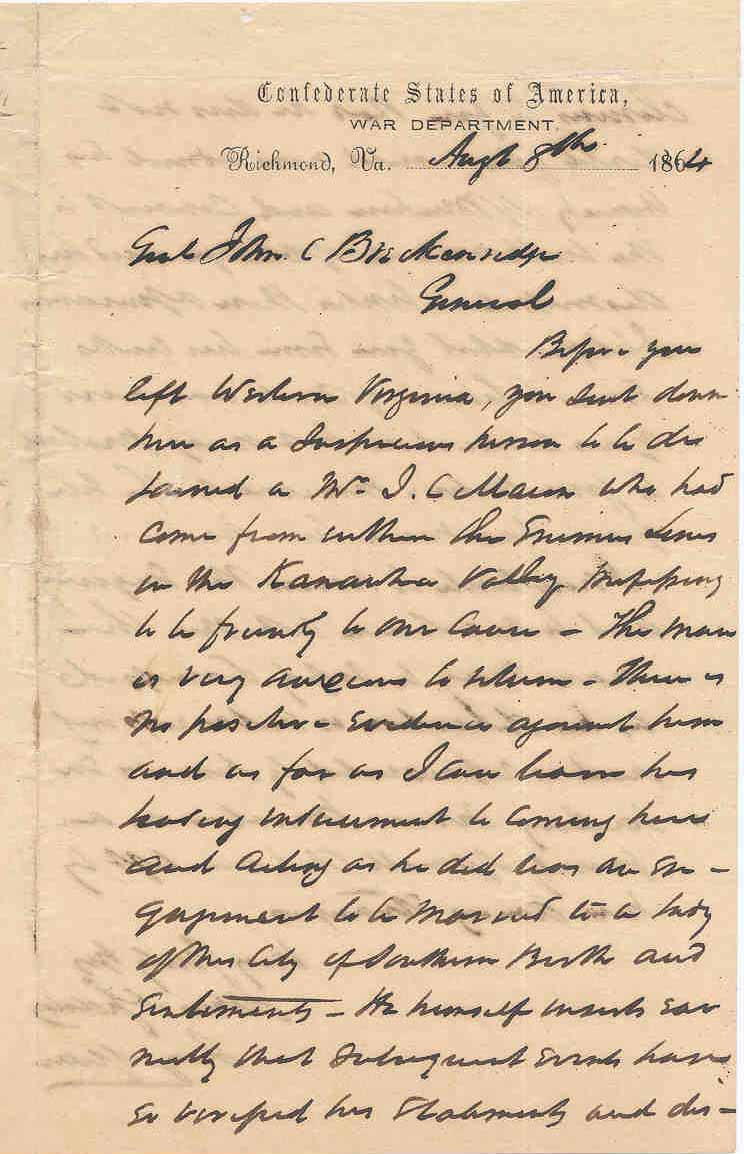 Confederate States of America,
WAR DEPARTMENT.
Richmond, Va. Augt 8th 1864
Genl John. C Breckenridge
General
Before you
left Western Virginia, you sent down
here as a Suspicious person to be de
tained a Mr. J. C. who had
come from within the Enemies Lines
in the Kanawha Valley professing
to be friendly to our Cause – The man
is very anxious to return – There is
no positive Evidence against him
and as far as I can learn his
leading inducement to coming here
and acting as he did was an En-
gagement to be married to a lady
of this City of Southern Birth and
Sentiments – He himself insists ear
nestly that subsequent Events have
so verified his Statements and dis-